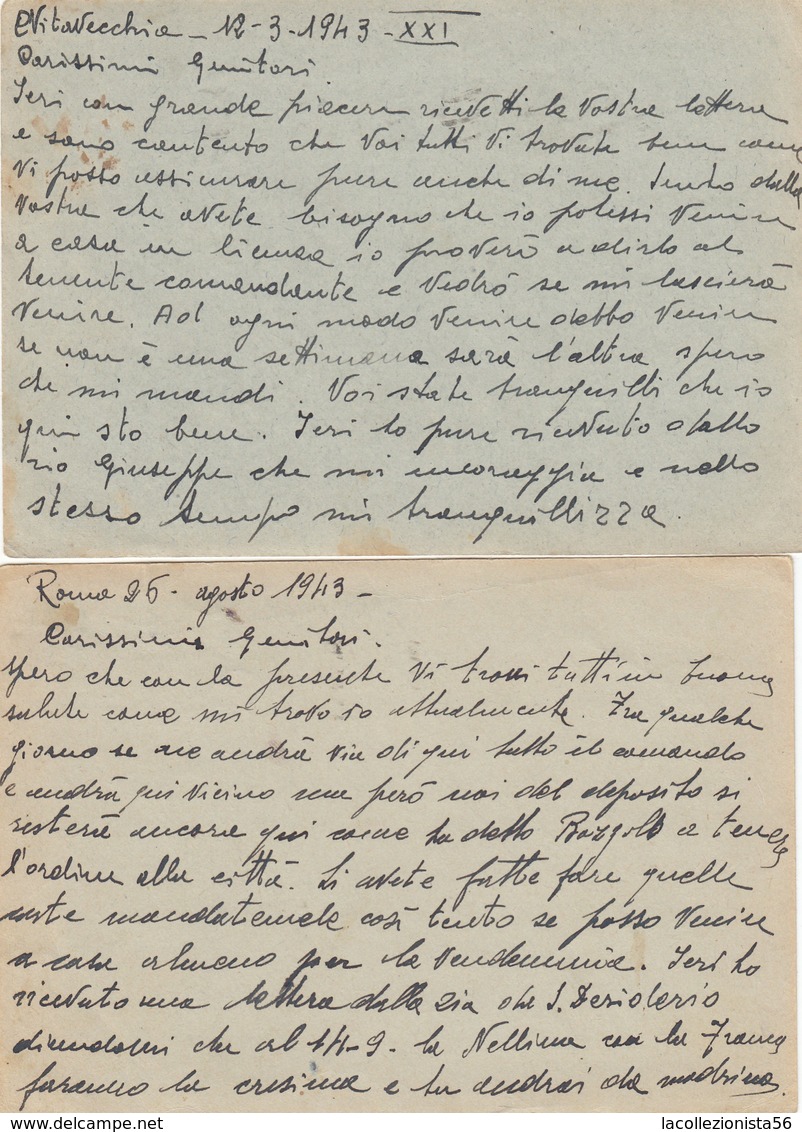 CVitavecchia - 12-3-1943-XXI
Carissimi Genitori
Ieri con grande piacere ricevetti la vostra lettera
e sono contento che Voi tutti Vi trovate bene come
Vi posso assicurare pure anche di me. Sento dalla
vostra che avete bisogno che io potessi venire
a casa in licenza io proverò a dirlo al
tenente comandante e vedrò se mi lascierà
venire. Ad ogni modo venire debbo venire
se non è una settimana sarà l'altra spero
che mi mandi. Voi state tranquilli che io
qui sto bene. Ieri ho pure ricevuto dallo
zio Giuseppe che mi incoraggia e nello
stesso tempo mi tranquillizza.
Roma 26 - agosto 1943 -
Carissimi Genitori.
spero che con la presente Vi trovi tutti in buona
salute come mi trovo io attualmente. Fra qualche
giorno se ne andrà via di qui tutto il comando
e andrà qui vicino ma però noi del deposito si
resterà ancora qui come ha detto a tenere
l'ordine alla città. Si avete fatte fare quelle
carte mandatemele così tento se posso venire
a casa almeno per la vendemmia. Ieri ho
ricevuto una lettera dalla zia da S. Desiderio
dicendomi che al 14-9- la Nellina con la Franca
faranno la cresima e tu andrai da madrina.
lacollezionista56